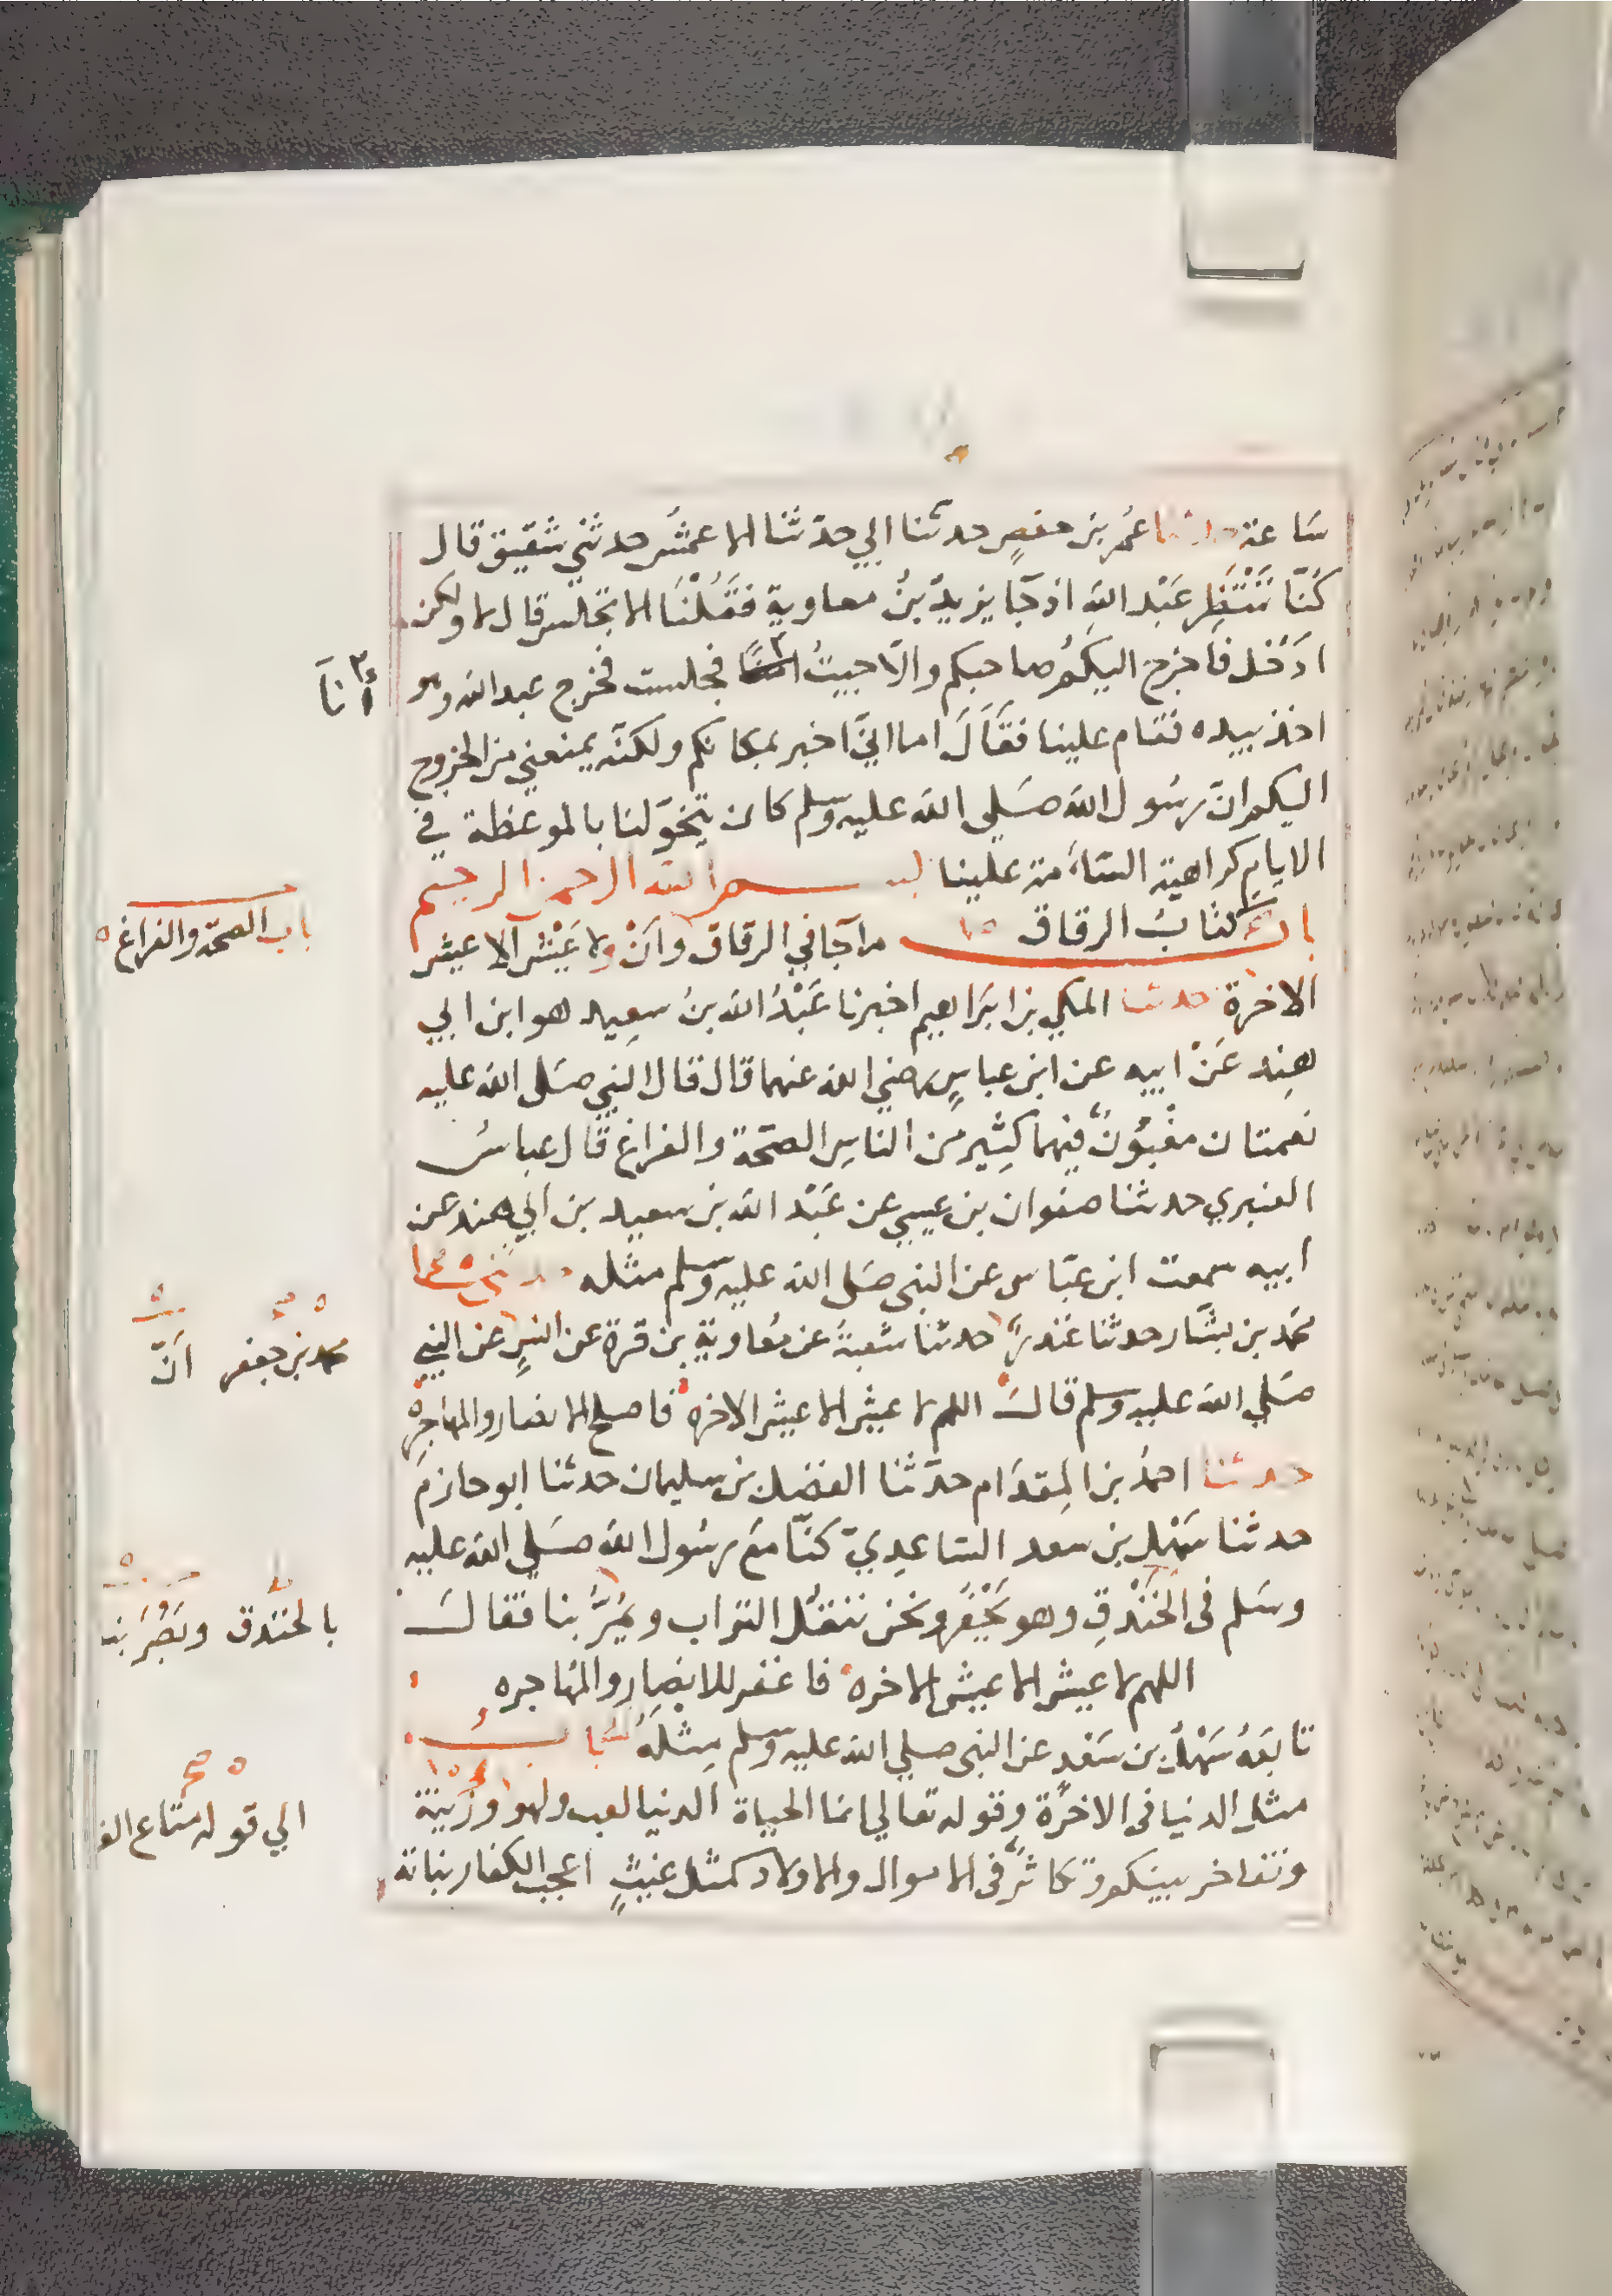 ساعة حدثنا عُمر بن حفصٍ حدثنا ابي حدّثنا الاعمشُ حدثني شقيق قال
كُنّا نَنْتَظِر عَبْد اللهِ اذ جَا يزيدُ بنُ معاوية فقُلْنَا الا تجلس قال لا ولكن
ادَخُل فاُخرج اليكُم صاحبكم والّا جيتُ فجلست فخرج عبد الله وهو
أنَا
اخذ بيده فقام علينا فقَالَ اما انيّ اخبر بمكانكم ولكنّه يمنعني من الخروج
اليكم انّ رسُول الله صَلي الله عليه وسلم كان يتخوّلنا بالموعظة في
الايام كراهية السّاَمة علينا بسم الله الرحمن الرحيم
باب كتابُ الرقاق ما جَا في الرقاق وَاَنْ ولا عَيْش الا عيش
باب الصحّة والفراغ
الاخرة حدثنا المكي بن ابرَاهيم اخبرنا عَبْدُ الله بنُ سعِيد هو ابن ابي
هِند عَنْ ابيه عن ابن عباسٍ رضي الله عنهما قال قال النبي صَلي الله عليه
نعمتان مغْبُونٌ فيهما كثِير من الناسِ الصحّة والفراغ قال عباسُ
العنبري حدثنا صفوان بن عيسي عن عَبْد الله بن سعيد بن ابي هند عن
ابيه سمعت ابن عبّاس عن النبي صَلي الله عليه وسلم مثله حدثني
محمد بن بشّار حدثنا غندرٌ حدثنا شعبةُ عن معُاوية بن قرة عن انسٍ عن النبي
محمد بن جعفر انّ
صَلي الله عليه وسلم قالَ اللهم لا عيش الا عيش الاخره فاصلح الانصار والمهاجِره
حدثنا احمدُ بن المِقدَام حدّثنا الفضيل بن سليمان حدثنا ابو حازم
حدثنا سَهْل بن سعد السّاعدِيّ كنّا معَ رسُول الله صَلي الله عليه
وسَلم في الخَنْدقِ وهو يَحْفُر ونحن ننقُل التراب ويمُرُّ بنا فقالَ
بالخندق وبَصُرَ بنا
اللهم لا عيش الا عيش الاخره فاغفر للانصار والمهُاجره
تابعَهُ سَهْلُ بن سَعْد عن النبي صلي الله عليه وسلم مِثلَهُ بَاب
مثل الدنيا في الاخرة وقوله تعالي انما الحياة الدنيا لعب ولهو وزينة
الي قوله متاع الغ
وتفاخر بينكم وتكاثُر في الاموال والاولاد كمثل غيثٍ اعجب الكفار نباته